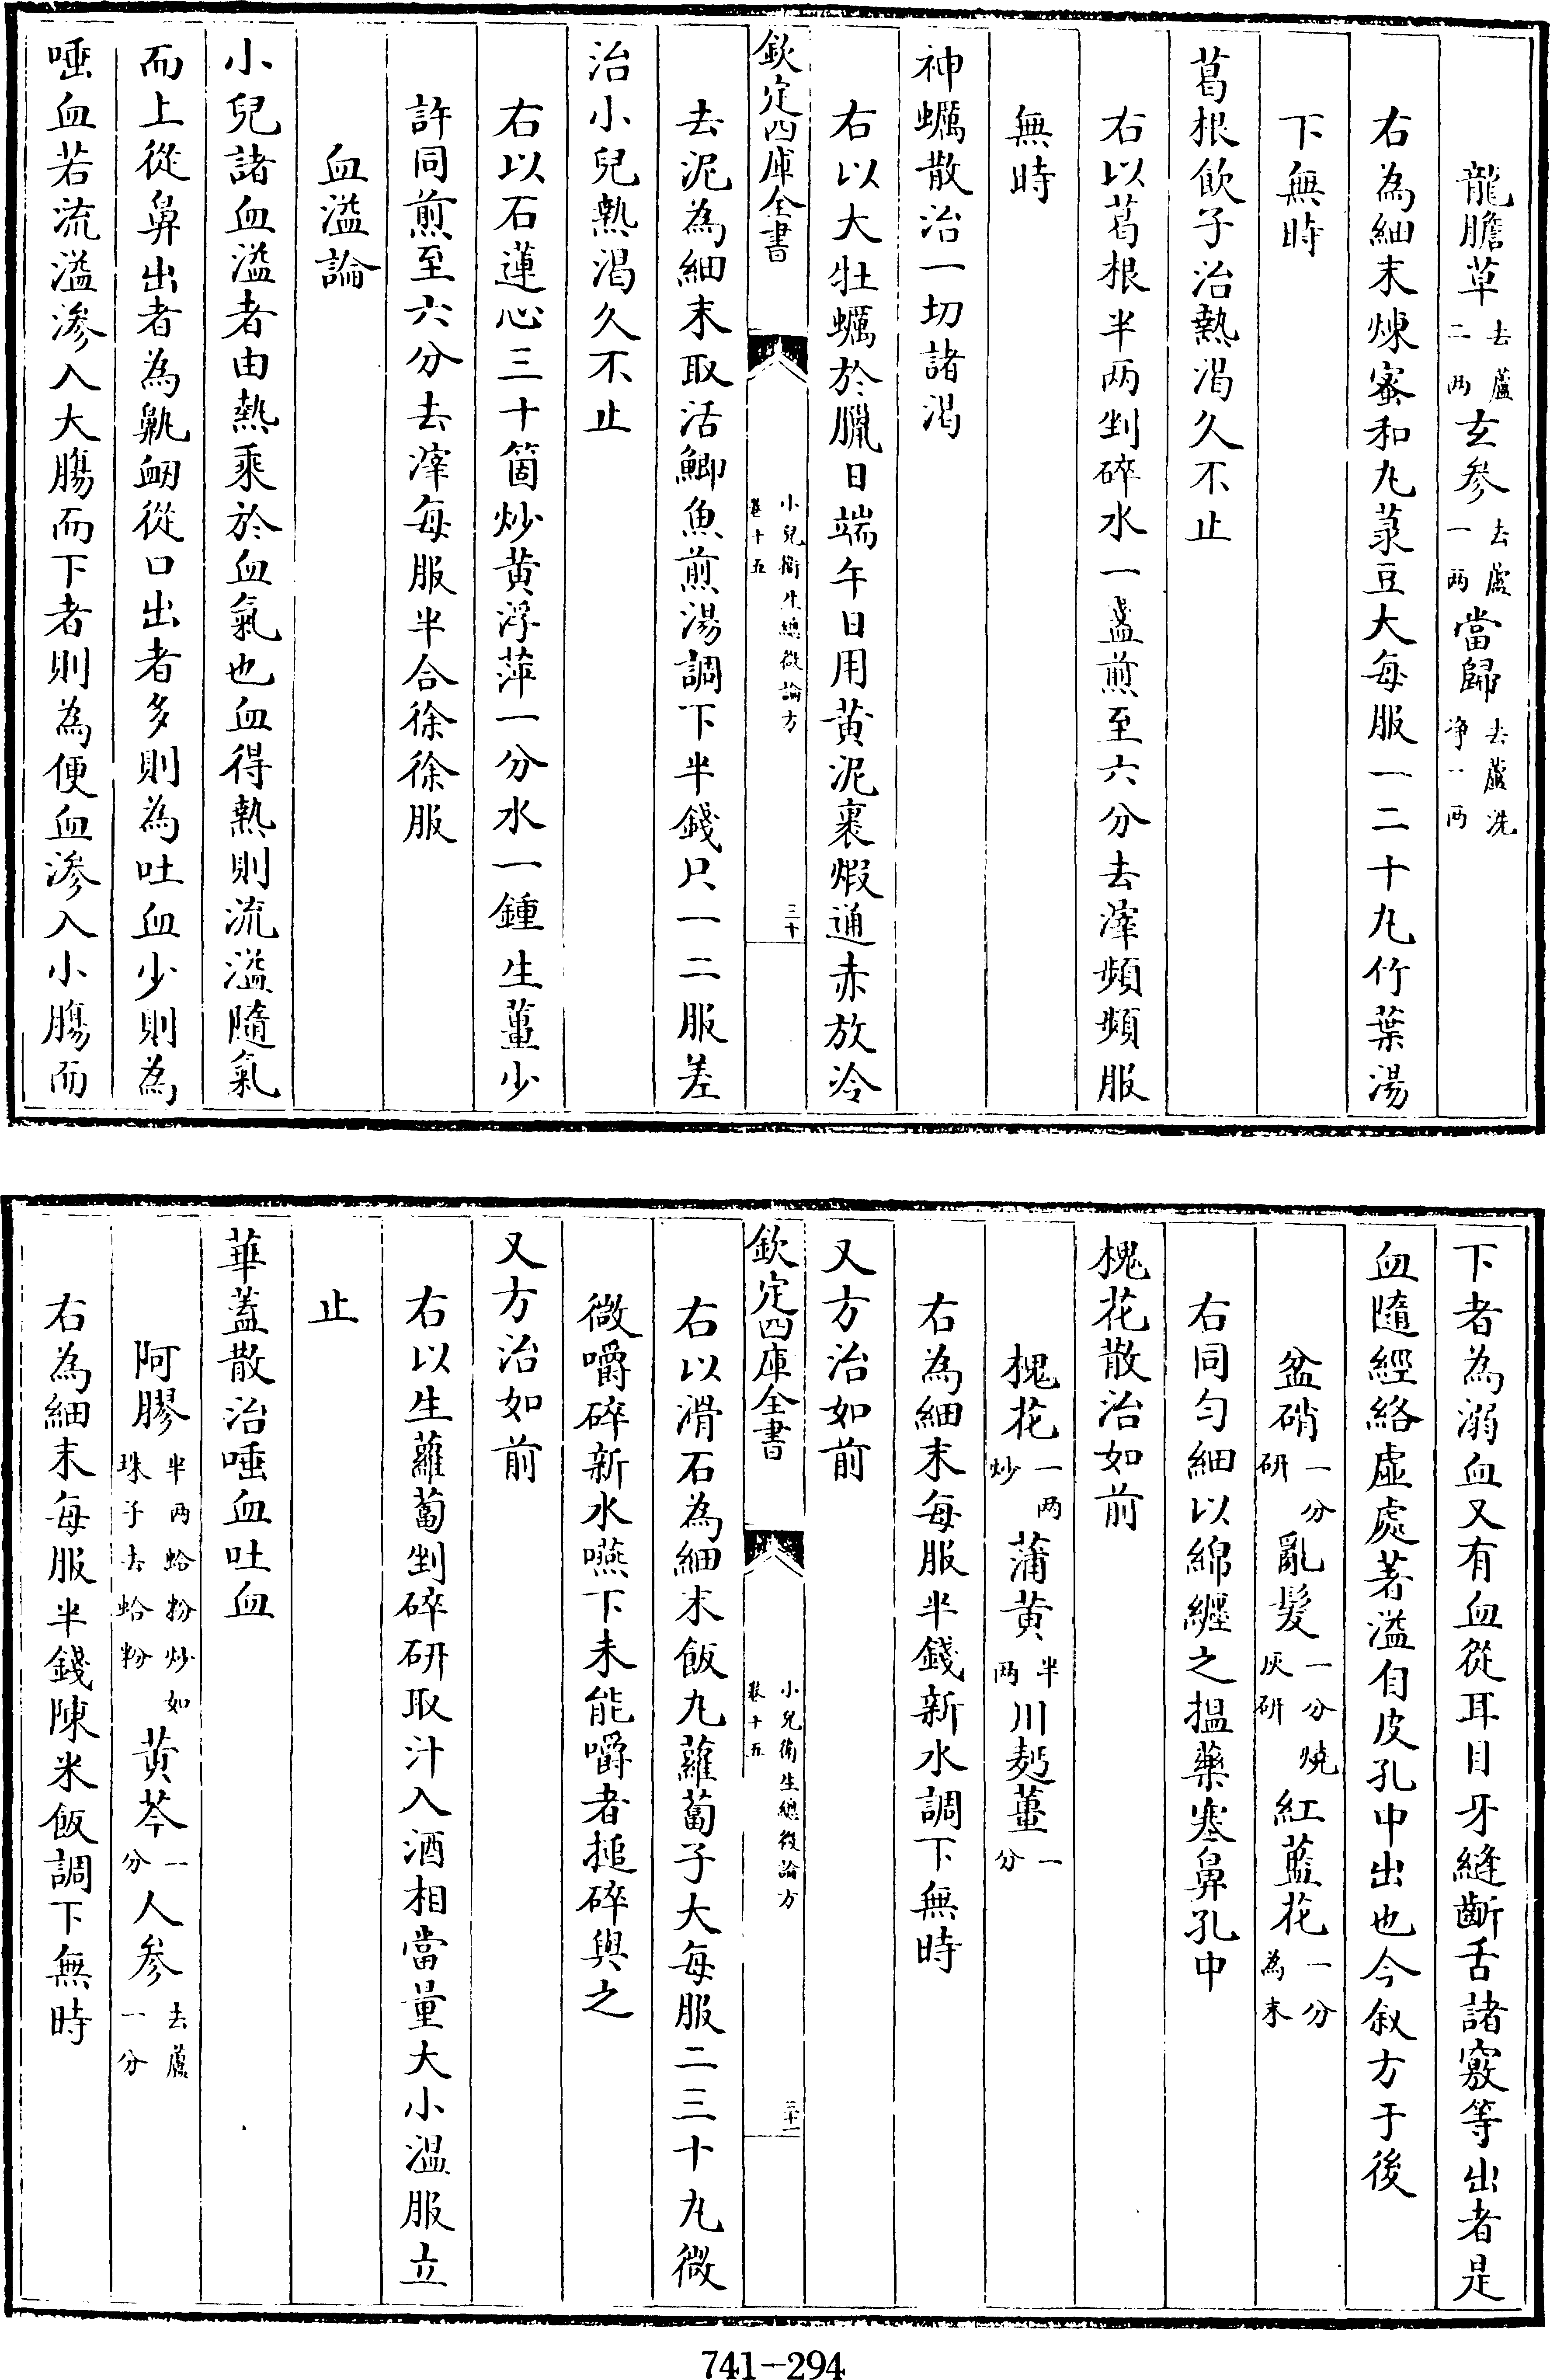 龍膽草去蘆二两玄參去蘆一两當歸去蘆洗净一两
右為細末煉蜜和丸菉豆大每服一二十丸竹葉湯
下無時
葛根飲子治熱渴久不止
右以葛根半两剉碎水一盞煎至六分去滓頻頻服
無時
神蠣散治一切諸渴
右以大牡蠣於臘日端午日用黄泥裹煅通赤放冷
欽定四庫全書
小兒衛生總微論方
卷十五
三十
去泥為細末取活鯽魚煎湯調下半錢只一二服差
治小兒熱渴久不止
右以石蓮心三十箇炒黄浮萍一分水一鍾生薑少
許同煎至六分去滓每服半合徐徐服
血溢論
小兒諸血溢者由熱乘於血氣也血得熱則流溢隨氣
而上從鼻出者為鼽衂從口出者多則為吐血少則為
唾血若流溢滲入大腸而下者則為便血滲入小腸而
下者為溺血又有血從耳目牙縫齗舌諸竅等出者是
血隨經絡虛處著溢自皮孔中出也今叙方于後
盆硝一分研亂髮一分燒灰研紅藍花一分為末
右同匀細以綿纏之搵藥塞鼻孔中
槐花散治如前
槐花一两炒蒲黄半两川麫薑一分
右為細末每服半錢新水調下無時
又方治如前
欽定四庫全書
小兒衛生總微論方
卷十五
三十一
右以滑石為細末飯丸蘿蔔子大每服二三十丸微
微嚼碎新水嚥下未能嚼者搥碎與之
又方治如前
右以生蘿蔔剉碎研取汁入酒相當量大小温服立
止
華蓋散治唾血吐血
阿膠半两蛤粉炒如珠子去蛤粉黄芩一分人參去蘆一分
右為細末每服半錢陳米飯調下無時
741-294